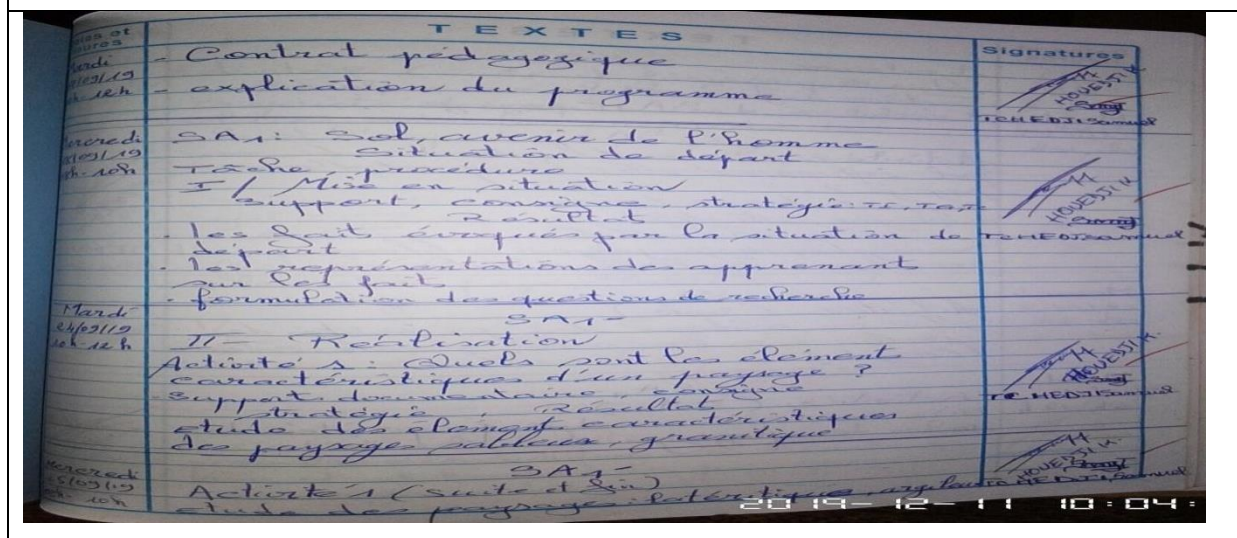 TEXTES
Signatures
- Contrat pédagogique
- explication du programme
HOUEDJI K.
TCHEDJI Samuel
SA1: Sol, avenir de l'homme
Situation de départ
Tâche, procédure
I/ Mise en situation
Support, consigne, stratégie: TI,
Résultat
HOUEDJI K.
. les fait évoqués par la situation de
départ
. les représentations des apprenant
sur les fait
. formulation des questions de recherche
Mardi
24/09/19
10h-12h
SA1-
II- Réalisation
Activité 1: Quels sont les élément
caractéristiques d'un paysage ?
Support documentaire, consigne
stratégie, Résultat
étude des élément caractéristiques
des paysages sableux, granitique
HOUEDJI K.
TCHEDJI Samuel
SA1-
Activité 1 (suite et fin)
étude des paysages latéritique,
HOUEDJI K.
TCHEDJI Samuel
2019-12-11 10:04: